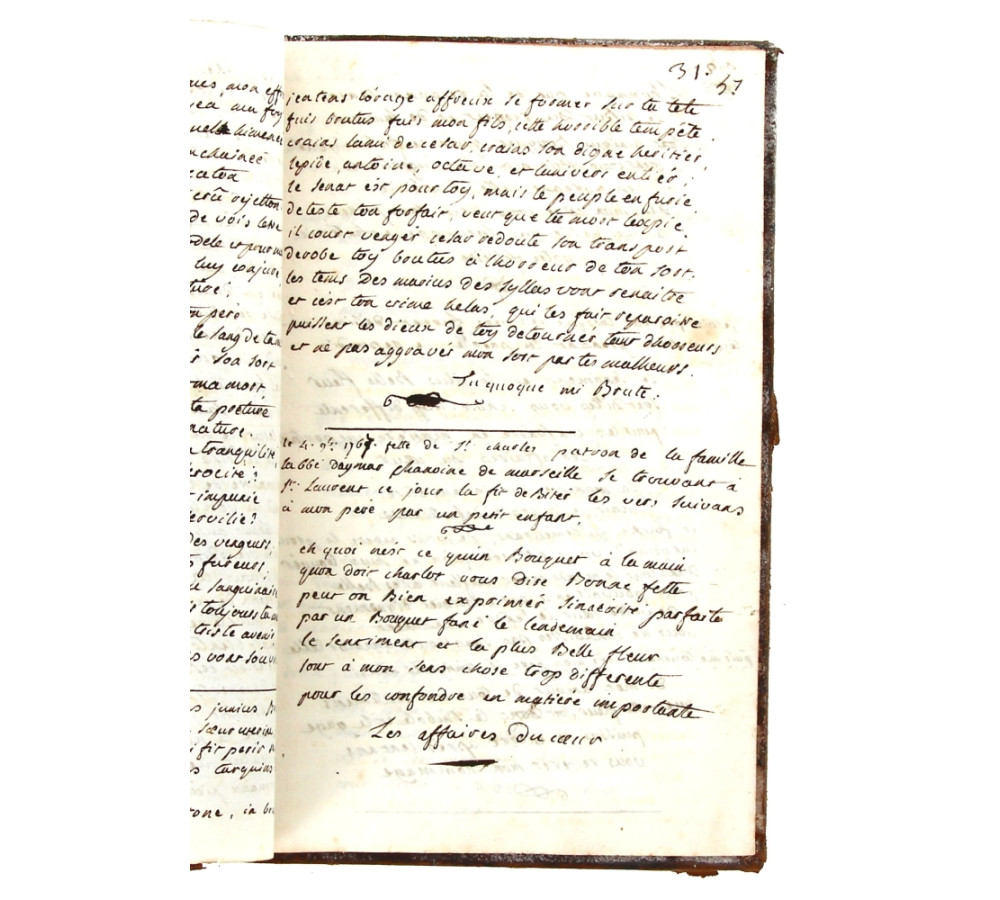 ques mon eff
ma foy
himenee
nchainée
caton
rejetton
de vois
dele et pour
luy conjure
ture;
n pere
le sang de ta
s son sort
ma mort
ta posture
nature.
tranquilité
rocité?
impunie
ervilie?
des vengeurs,
fureurs
sanguinaire
toujours
triste avenir
vont
s junius B
sœur
fit perir
s tarquins
rone, ia br
31s
57
jentens lorage affreux se former sur ta tete
fuis brutus fuis mon fils, cette horrible tempete.
crains lami de cesar, crains son digne heritier,
lepide, antoine, octave, et lunivers entier,
le senat est pour toy, mais le peuple en furie
deteste ton forfait, veut que ta mort lexpie
il court venger cesar redoute son transport
derobe toy brutus a lhorreur de ton sort.
les tems des marius des syllas vont renaitre
et cest ton crime helas, qui les fait reparoitre
puissent les dieux de toy detourner tant dhorreurs
et ne pas aggraver mon sort par tes malheurs.
Tu quoque mi Brute.
le 4. 9bre 1767. fette de St. charles patron de la famille
labbé Daymar chanoine de marseille se trouvant à
St. Laurent ce jour la fit debiter les vers suivans
à mon pere par un petit enfant.
eh quoi nest ce quun Bouquet à la main
quon doit charlot vous dire Bonne fette
peut on Bien exprimer sincerité parfaite
par un Bouquet fané le lendemain
le sentiment et la plus Belle fleur
sont à mon sens chose trop differente
pour les confondre en matiere importante
Les affaires du cœur